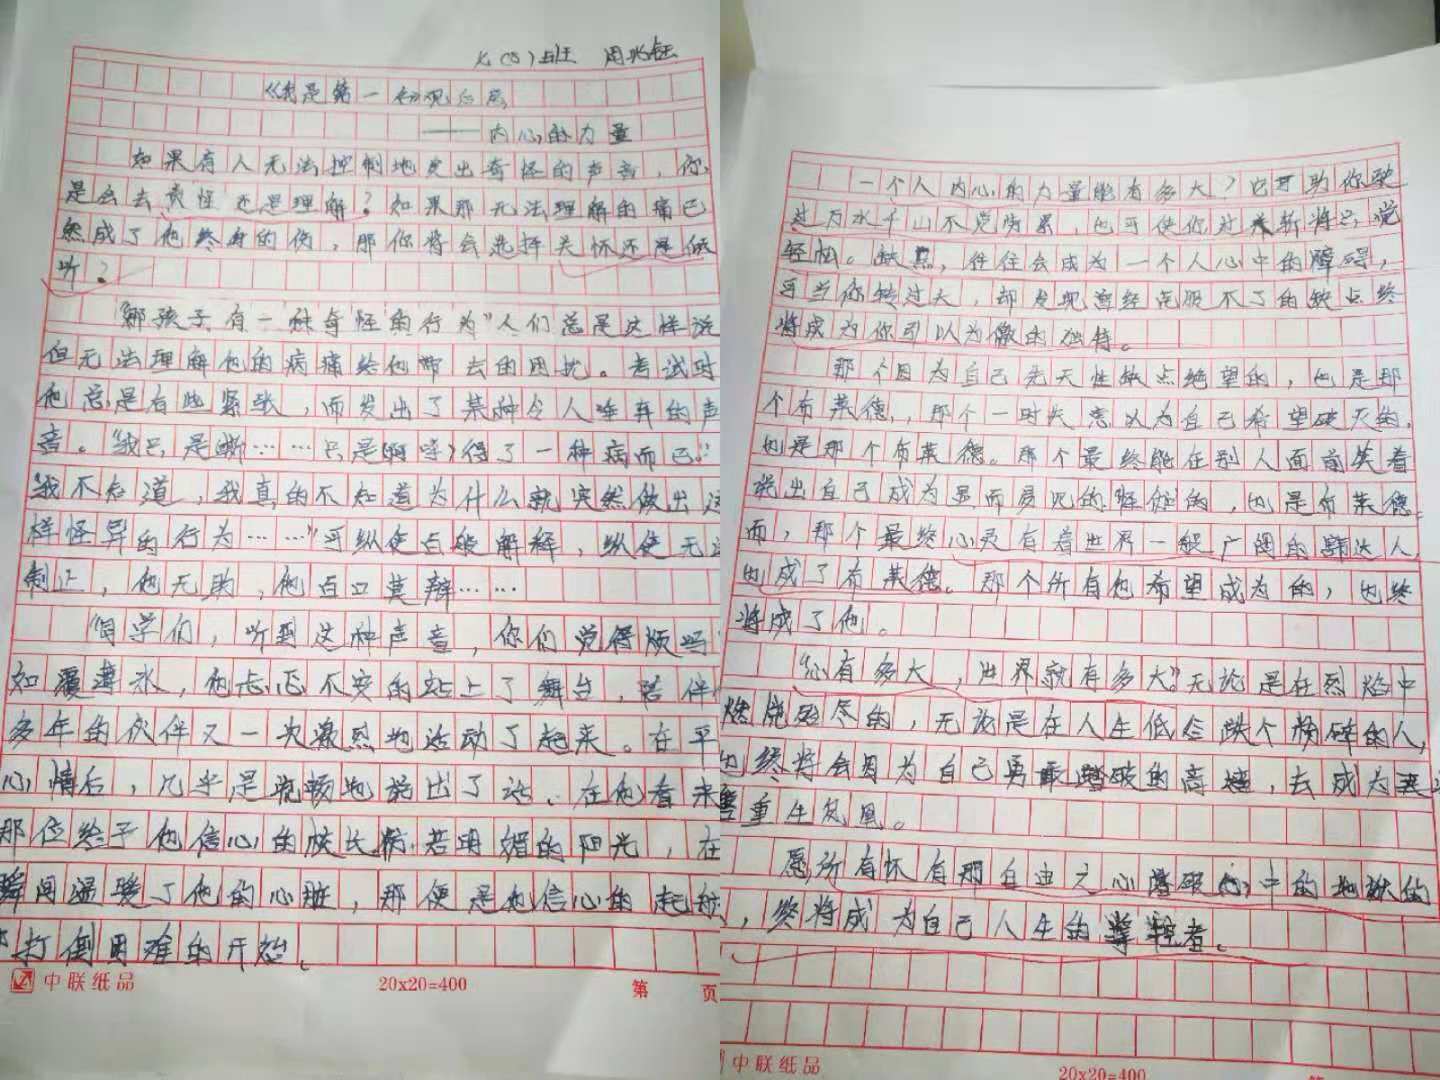 七(5)班 周
《我是第一名观后感
——内心的力量
如果有人无法控制地发出奇怪的声音，你
是会去责怪还是理解？如果那无法理解的痛已
然成了他终身的伤，那你将会选择关怀还是倾
听？
“那孩子有一种奇怪的行为”人们总是这样说
但无法理解他的病痛给他带去的困扰。考试时
他总是有些紧张，而发出了某种令人唾弃的声
音。“我只是嘶……只是得了一种病而已”
“我不知道，我真的不知道为什么就突然做出这
样怪异的行为……”可纵使百般解释，纵使无法
制止，他无助，他百口莫辩……
“同学们，听到这种声音，你们觉得烦吗
如履薄冰，他忐忑不安的站上了舞台，陪伴
多年的伙伴又一次激烈地运动了起来。在平
心情后，几乎是流畅地说出了话、在他看来
那位给予他信心的校长若明媚的阳光，在
瞬间温暖了他的心脏，那便是他信心的起
打倒困难的开始。
中联纸品
20x20=400
第 页
一个人内心的力量能有多大？它可助你驶
过万水千山不觉劳累，也可使你过来斩将只觉
轻松。缺点，往往会成为一个人心中的障碍，
可当你转过大，却发现曾经克服不了的缺点终
将成为你引以为傲的独特。
那个因为自己先天性缺点绝望的，也是那
个布莱德，那个一时失意以为自己希望破灭的，
也是那个布莱德。那个最终能在别人面前笑着
说出自己成为显而易见的怪佬的，也是布莱德。
而，那个最终心灵有着世界一般广阔的豁达人，
也成了布莱德。那个所有他希望成为的，也终
将成了他。
“心有多大，世界就有多大”无论是在烈焰中
燃烧殆尽的，无论是在人生低谷跌个粉碎的人，
也终将会因为自己勇敢踏破的高墙，去成为
重生凤凰。
愿所有怀有那自由之心踏破心中的地狱的
，终将成为自己人生的掌控者。
中联纸品
20x20=400